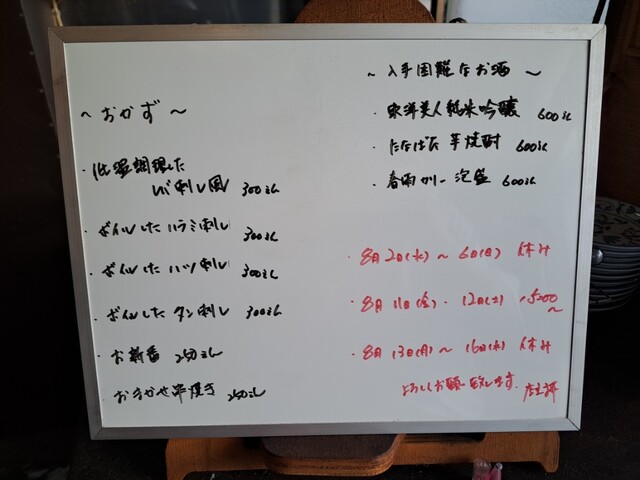 ～おかず～
・低温調理した
レバ刺し風 300えん
・ボイルしたハラミ刺し 300えん
・ボイルしたハツ刺し 300えん
・ボイルしたタン刺し 300えん
・お新香 250えん
・おまかせ串焼き 250えん
～入手困難なお酒～
・東洋美人 純米吟醸 600えん
・たなばた 芋焼酎 600えん
・春雨カリー 泡盛 600えん
・8月2日(水)～6日(日) 休み
・8月11日(金)・12日(土) 15:00～
・8月13日(月)～16日(水) 休み
よろしくお願い致します。店主拝